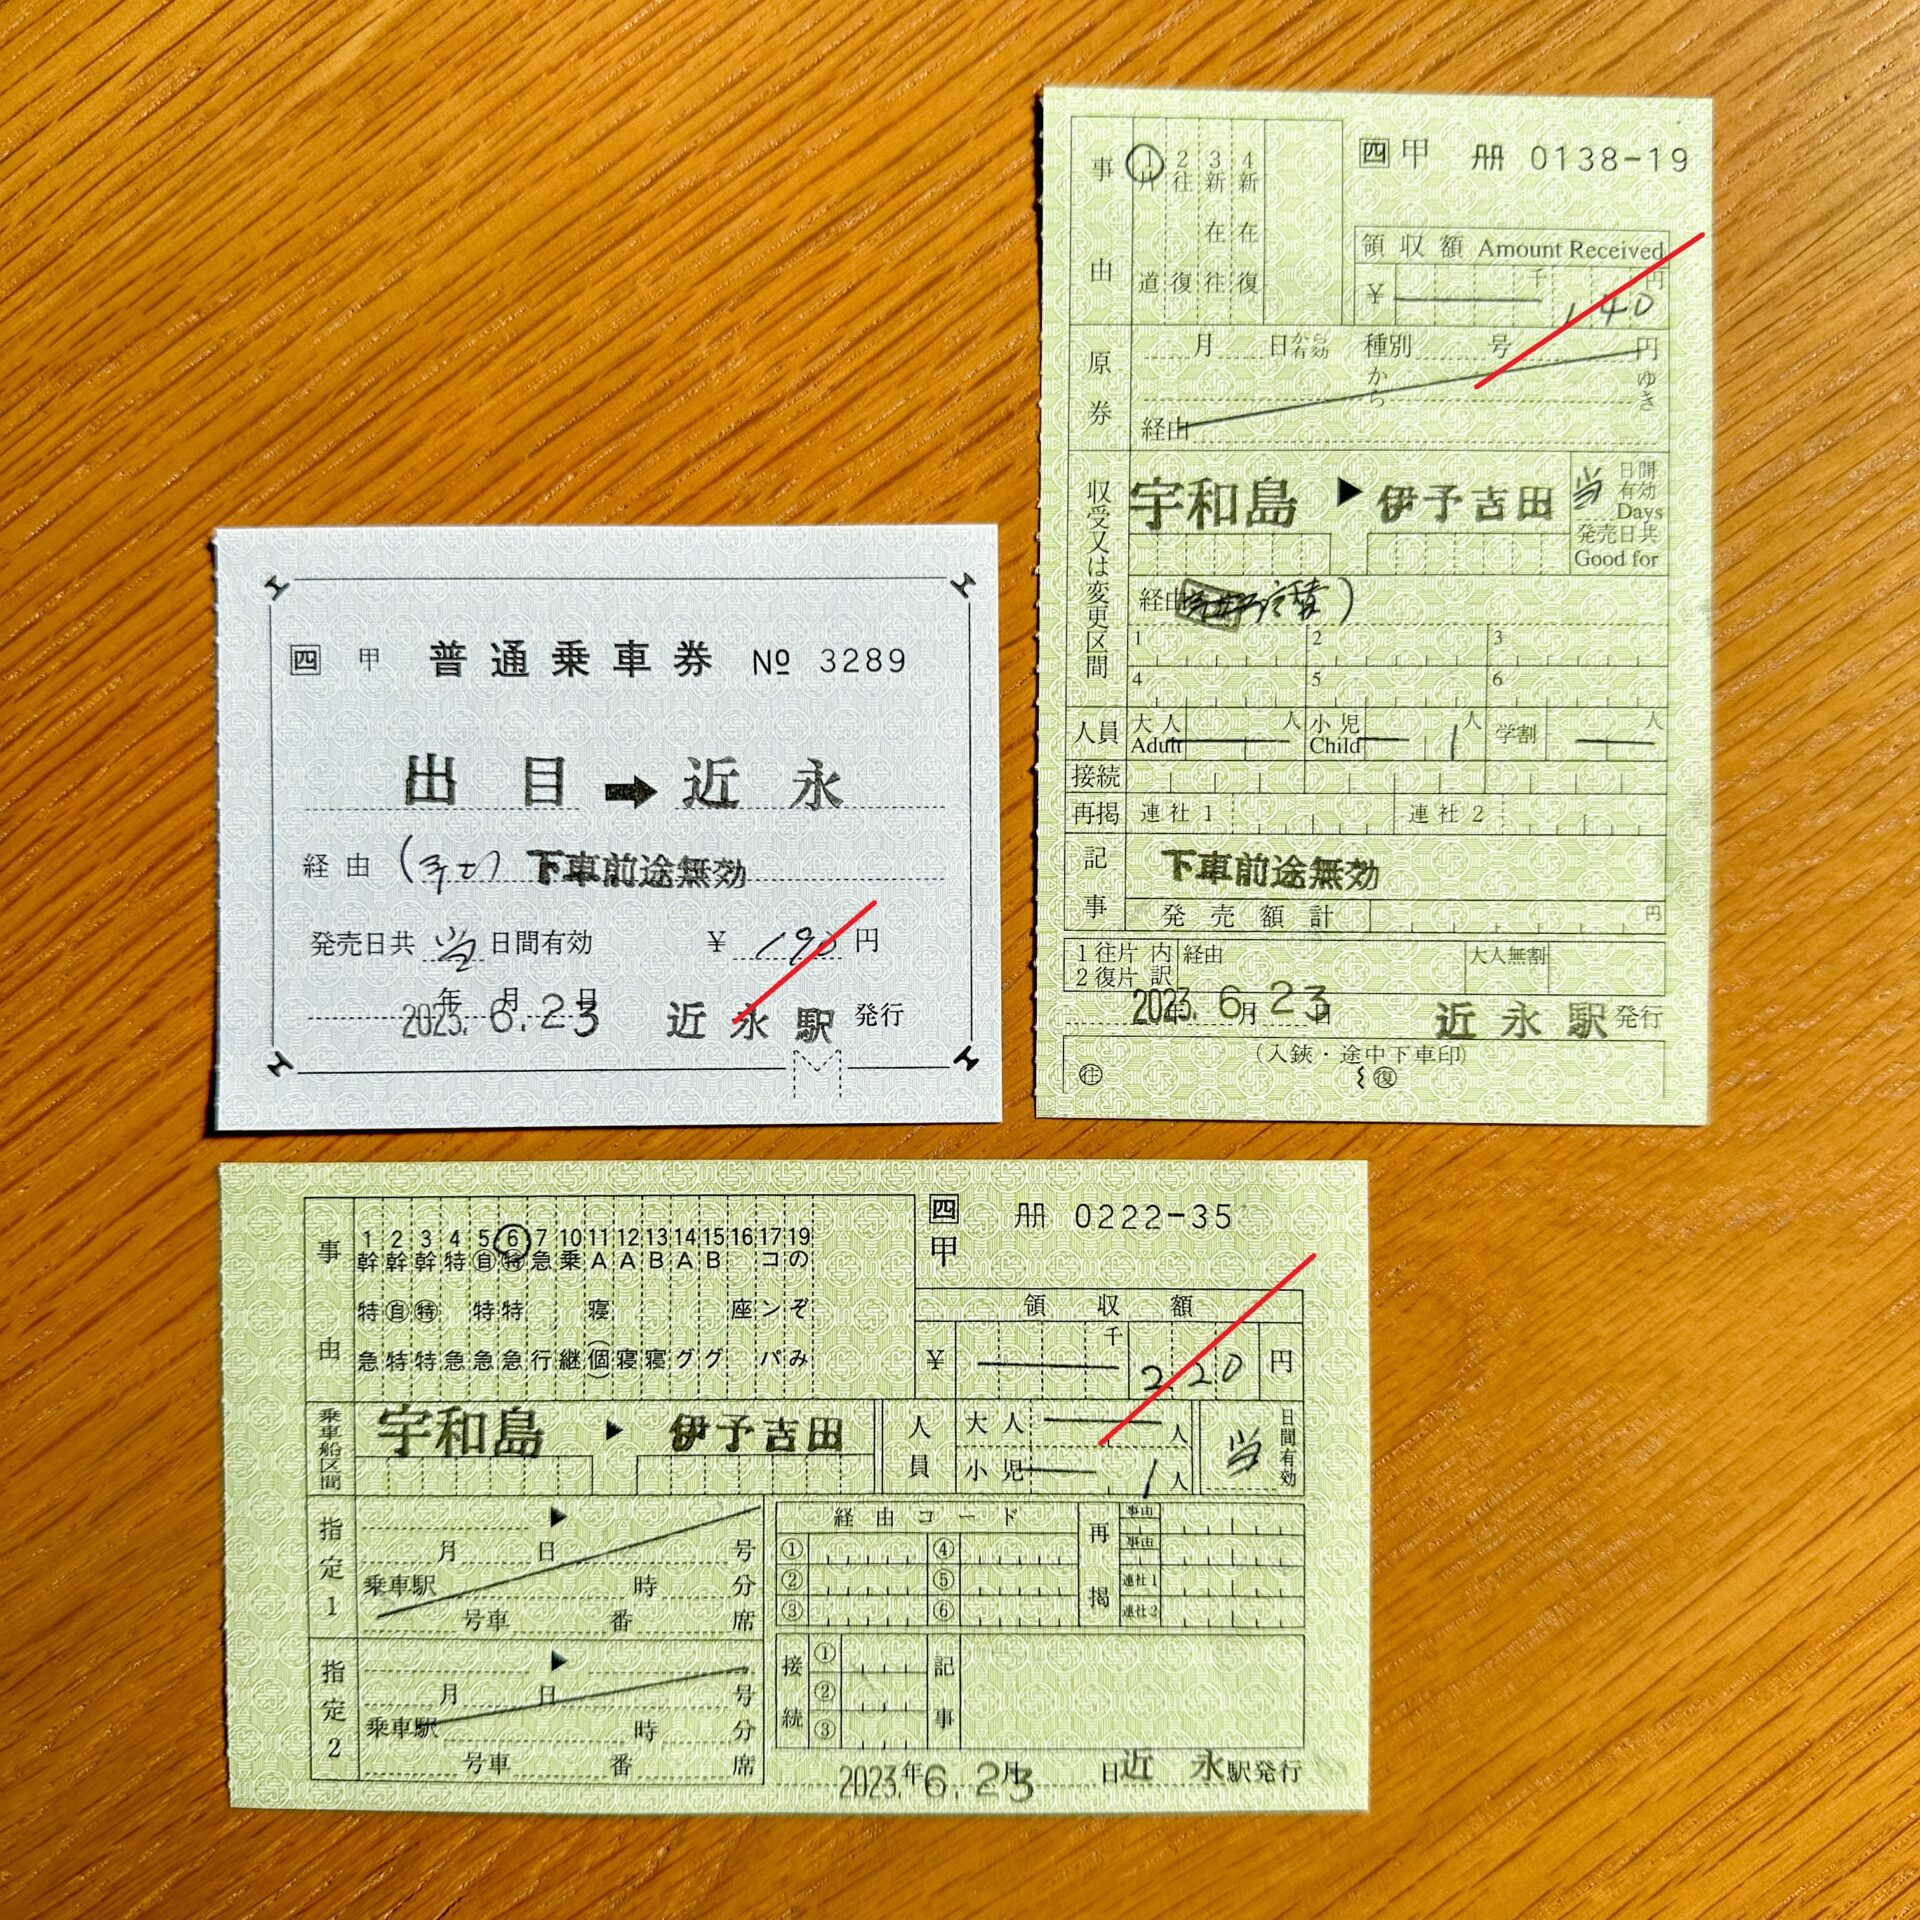 四 甲 普通乗車券 № 3289
出目 ➡ 近永
経由 (予土) 下車前途無効
発売日共 当 日間有効 ¥ 190 円
2023年 6.月23日 近永駅 発行
事由
1片道
2往復
3新在往
4新在復
四 甲 冊 0138-19
領収額 Amount Received
¥ 千 140 円
原券
月 日から有効 種別 号 円
から ゆき
経由
収受又は変更区間
宇和島 ▶ 伊予吉田
当 日間有効 Days
発売日共 Good for
経由
1 2 3
4 5 6
人員 大人 Adult 人 小児 Child 1 人 学割 人
接続
再掲 連社1 連社2
記事 下車前途無効
発売額計 円
1往片 2復片 内訳 経由 大人無割
2023年 6.月23日 近永駅 発行
(入鋏・途中下車印)
往 復
事由
1幹特急
2幹自特
3幹特特
4特急
5自特急
6特特急
7急行
10乗継
11A寝(個)
12A寝
13B寝
14Aグ
15Bグ
16座
17コンパ
19のぞみ
四甲 冊 0222-35
領収額
¥ 千 220 円
乗車船区間 宇和島 ▶ 伊予吉田
人員 大人 人
小児 1 人
当 日間有効
指定1
▶
月 日 号
乗車駅 時 分
号車 番 席
指定2
▶
月 日 号
乗車駅 時 分
号車 番 席
経由コード
① ④
② ⑤
③ ⑥
再掲
事由
事由
連社1
連社2
接続 ① ② ③
記事
2023年6.2月3日 近永駅発行